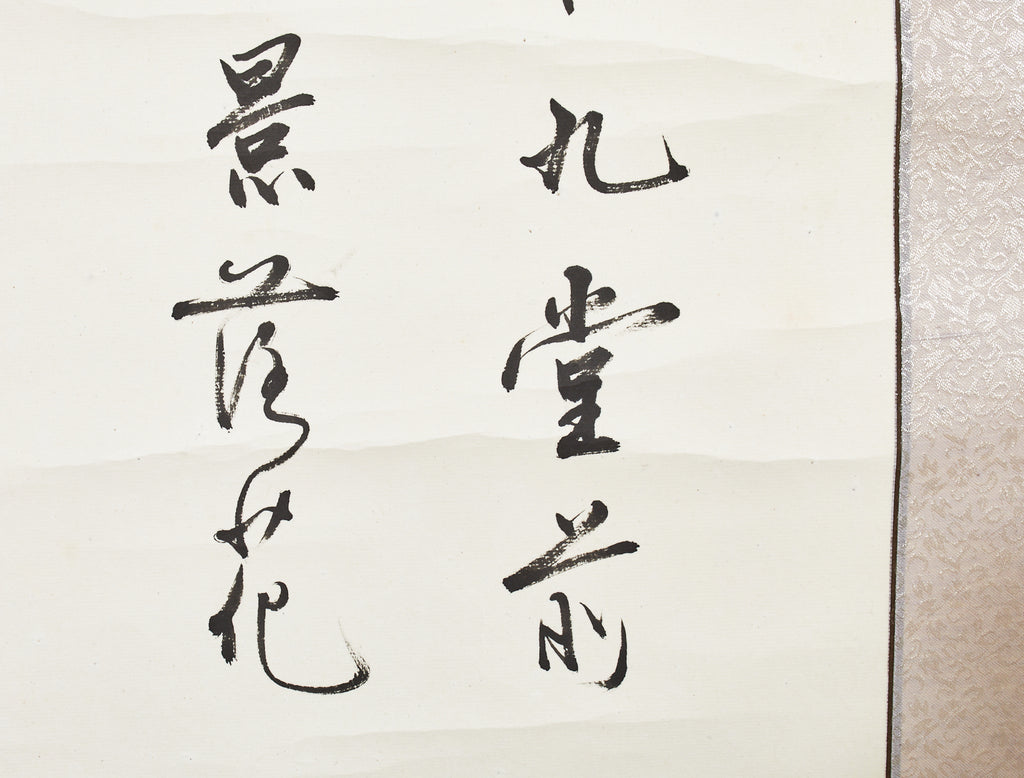 九堂前
景落花